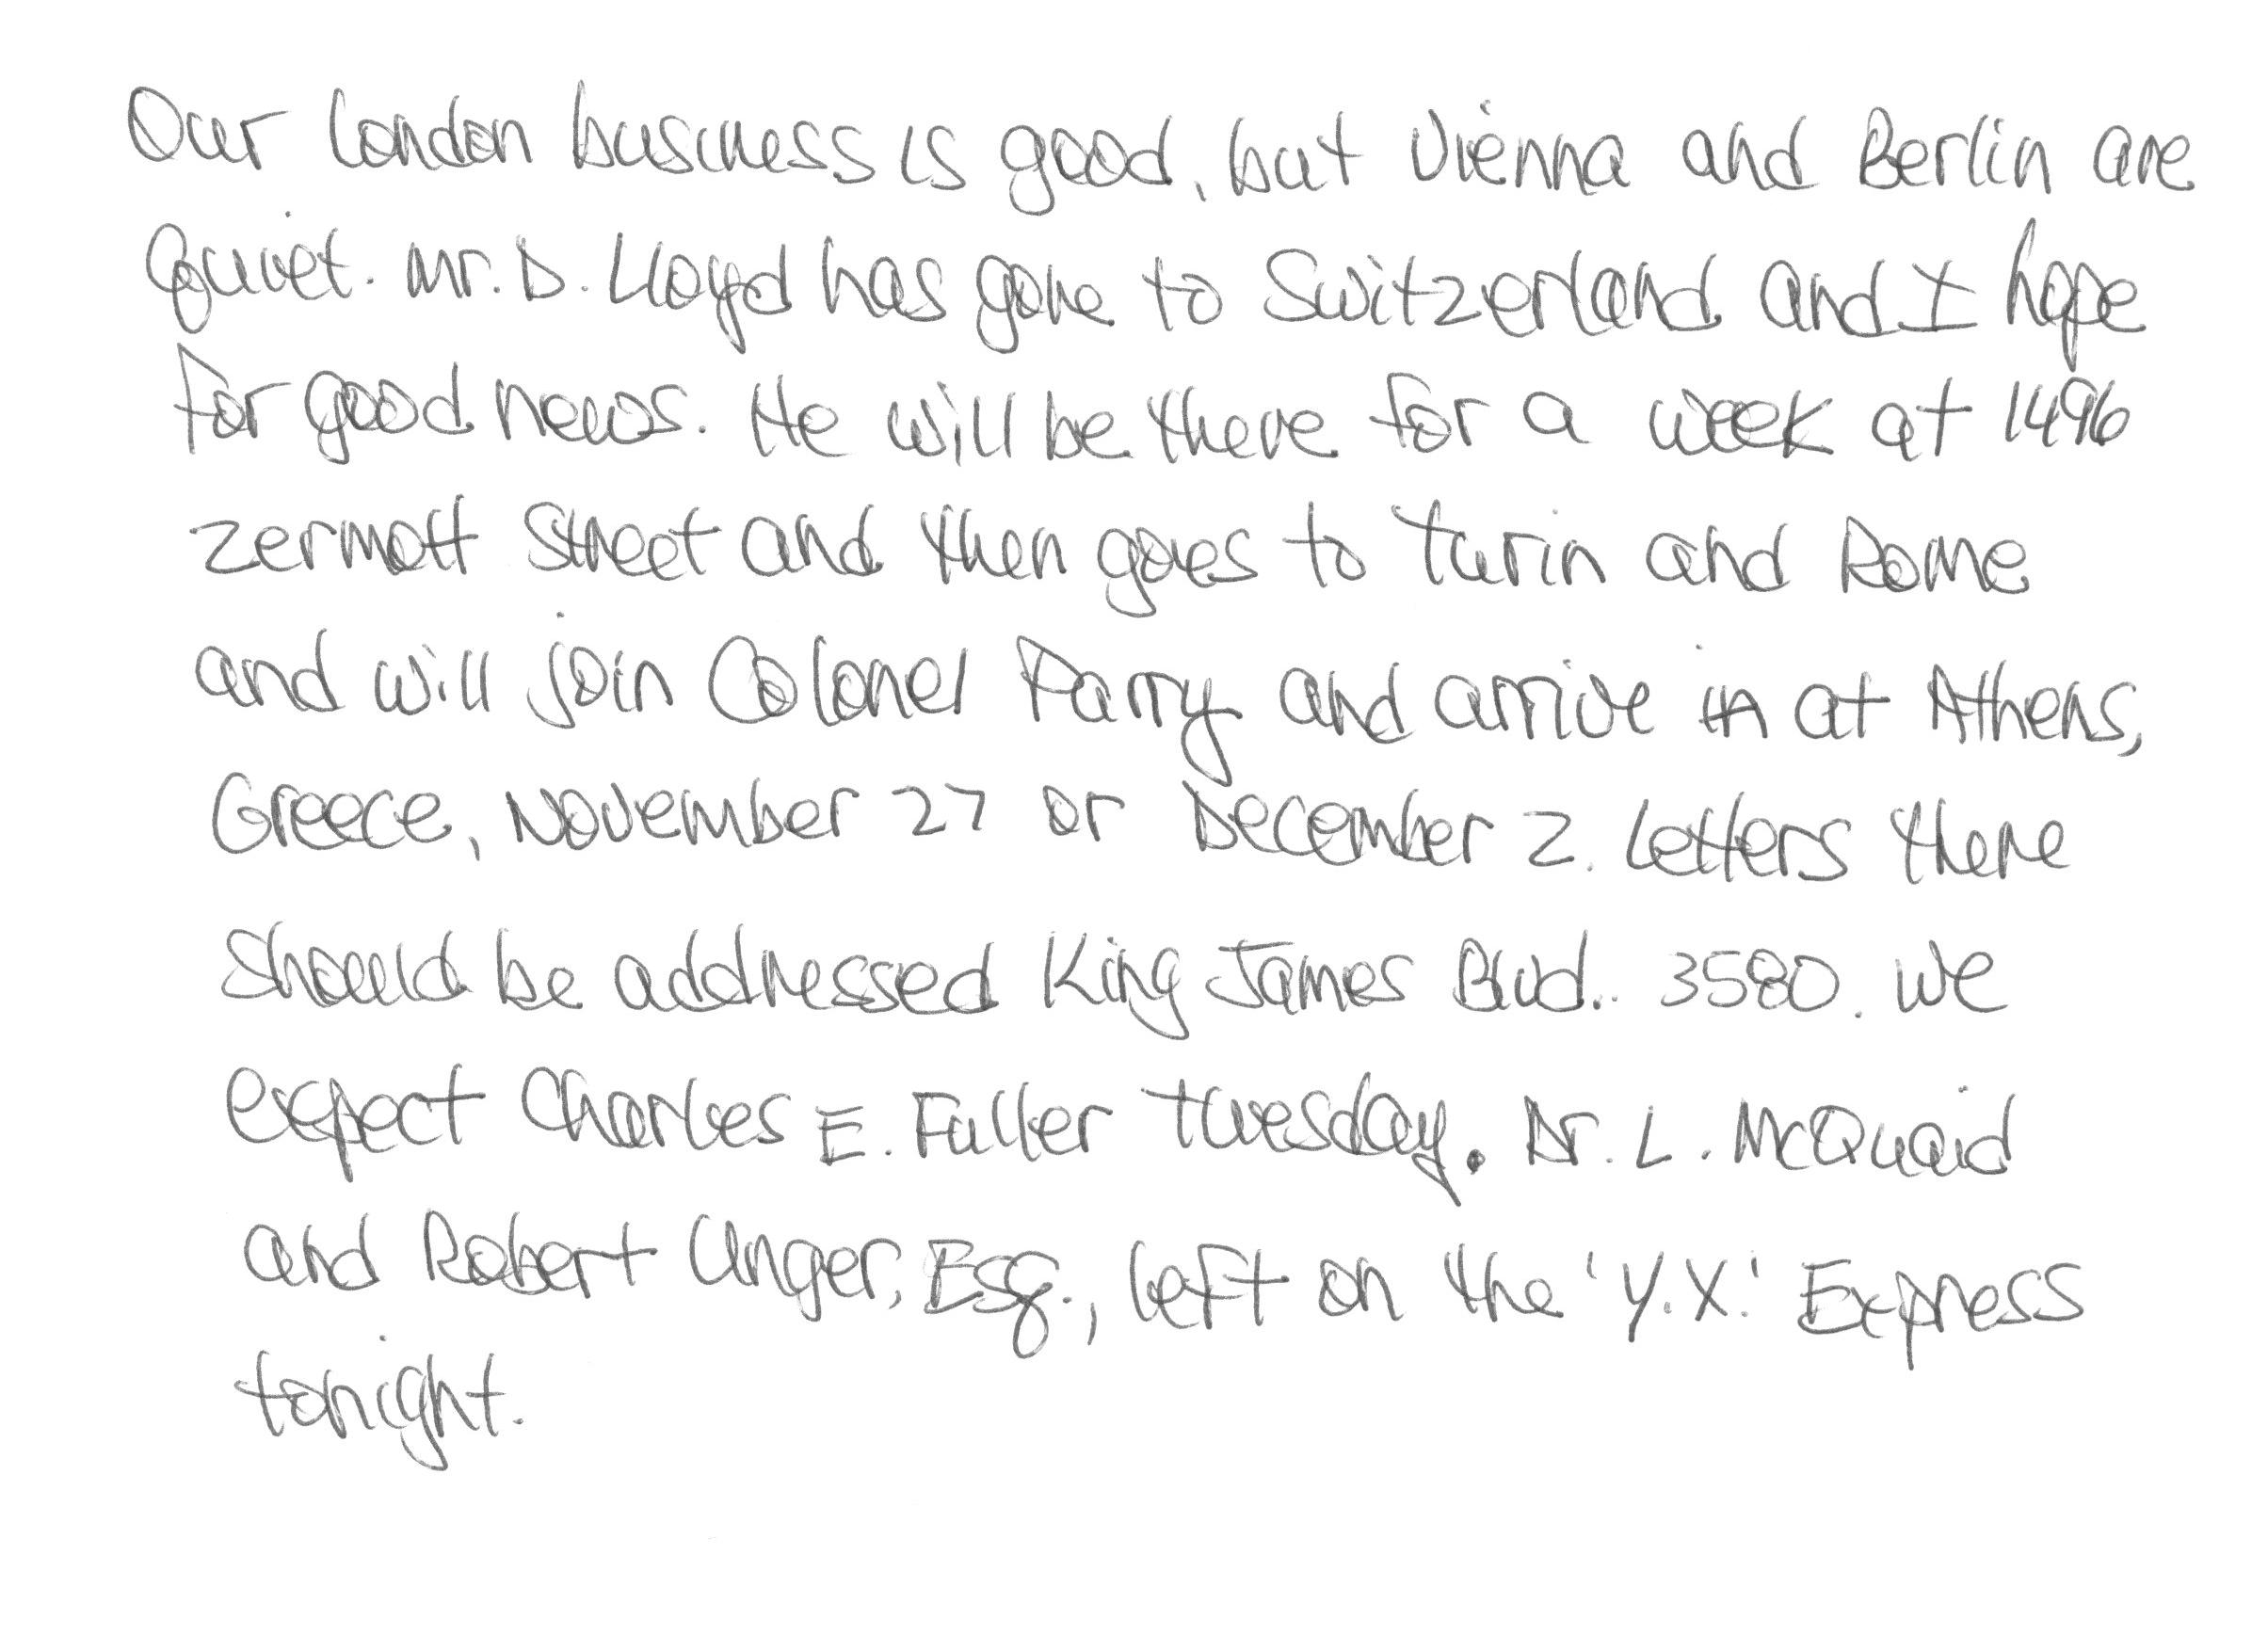 Our London business is good, but Vienna and Berlin are
Quiet. Mr. D. Lloyd has gone to Switzerland and I hope
for good news. He will be there for a week at 1496
Zermott Street and then goes to Turin and Rome
and will join Colonel Parry and arrive in at Athens,
Greece, November 27 or December 2. Letters there
should be addressed King James Blvd.. 3580. We
expect Charles E. Fuller Tuesday. Dr. L. McQuaid
and Robert Unger, Esq., left on the 'Y.X.' Express
tonight.